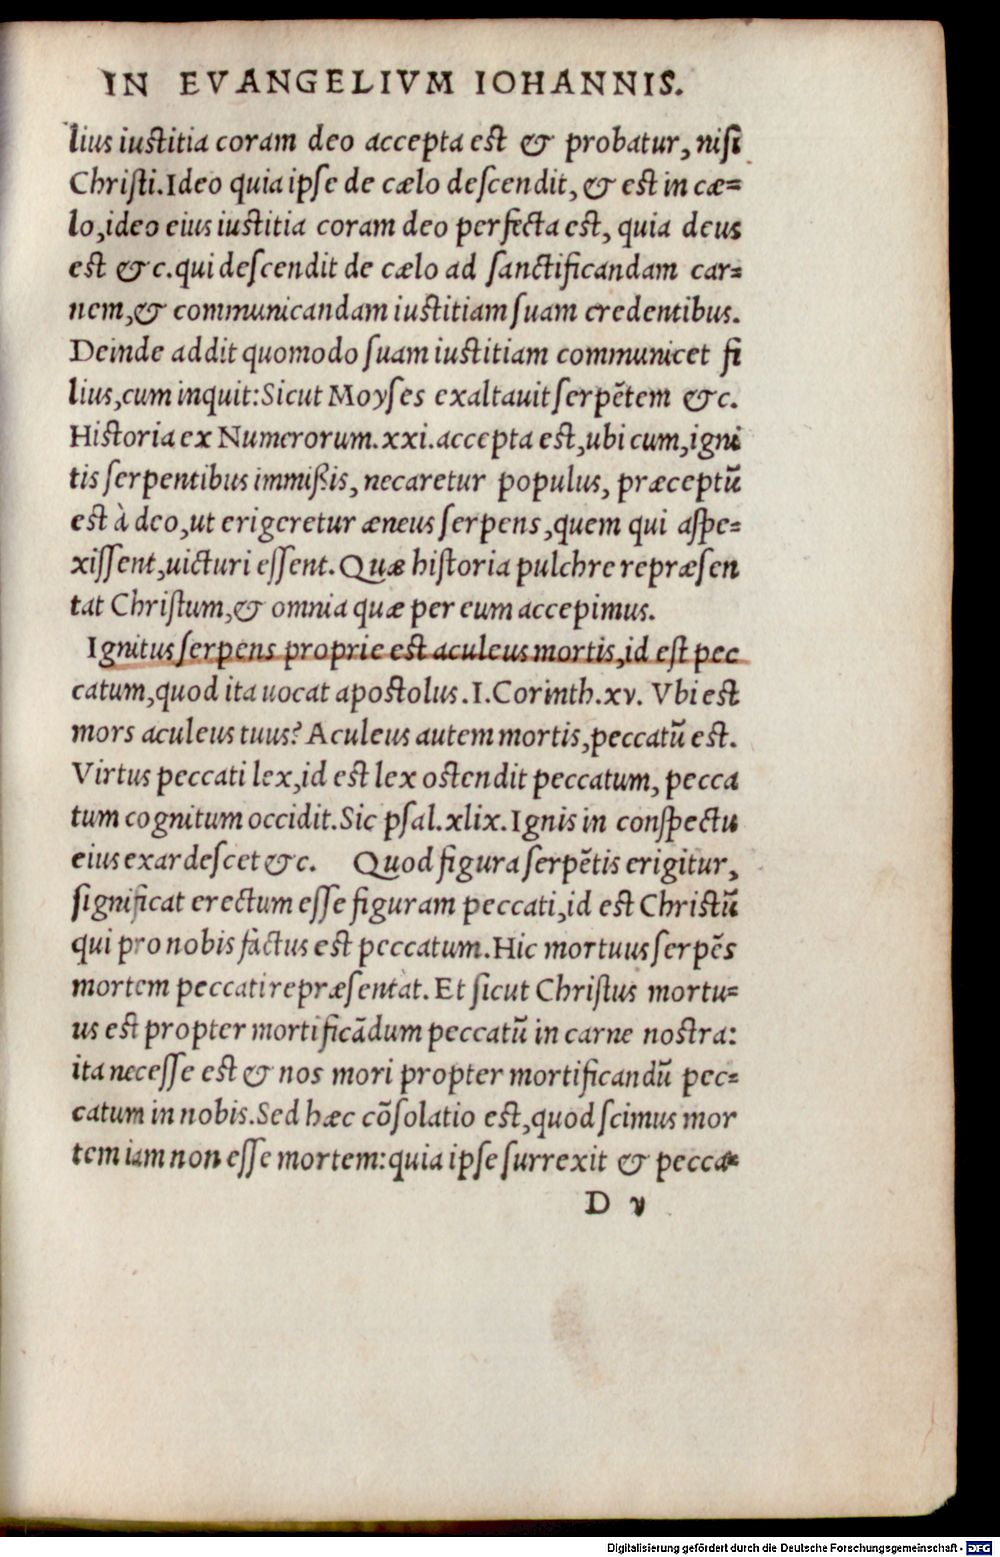 IN EVANGELIVM IOHANNIS.
lius iustitia coram deo accepta est & probatur, nisi
Christi. Ideo quia ipse de cælo descendit, & est in cæ=
lo, ideo eius iustitia coram deo perfecta est, quia deus
est &c. qui descendit de cælo ad sanctificandam car=
nem, & communicandam iustitiam suam credentibus.
Deinde addit quomodo suam iustitiam communicet fi
lius, cum inquit: Sicut Moyses exaltauit serpẽtem &c.
Historia ex Numerorum. xxi. accepta est, ubi cum, igni
tis serpentibus immißis, necaretur populus, præceptũ
est à deo, ut erigeretur æneus serpens, quem qui aspe=
xissent, uicturi essent. Quæ historia pulchre repræsen
tat Christum, & omnia quæ per eum accepimus.
Ignitus serpens proprie est aculeus mortis, id est pec
catum, quod ita uocat apostolus. I. Corinth. xv. Vbi est
mors aculeus tuus? Aculeus autem mortis, peccatũ est.
Virtus peccati lex, id est lex ostendit peccatum, pecca
tum cognitum occidit. Sic psal. xlix. Ignis in conspectu
eius exardescet &c. Quod figura serpẽtis erigitur,
significat erectum esse figuram peccati, id est Christũ
qui pro nobis factus est peccatum. Hic mortuus serpẽs
mortem peccati repræsentat. Et sicut Christus mortu=
us est propter mortificãdum peccatũ in carne nostra:
ita necesse est & nos mori propter mortificandũ pec=
catum in nobis. Sed hæc cõsolatio est, quod scimus mor
tem iam non esse mortem: quia ipse surrexit & pecca=
D v
Digitalisierung gefördert durch die Deutsche Forschungsgemeinschaft - DFG